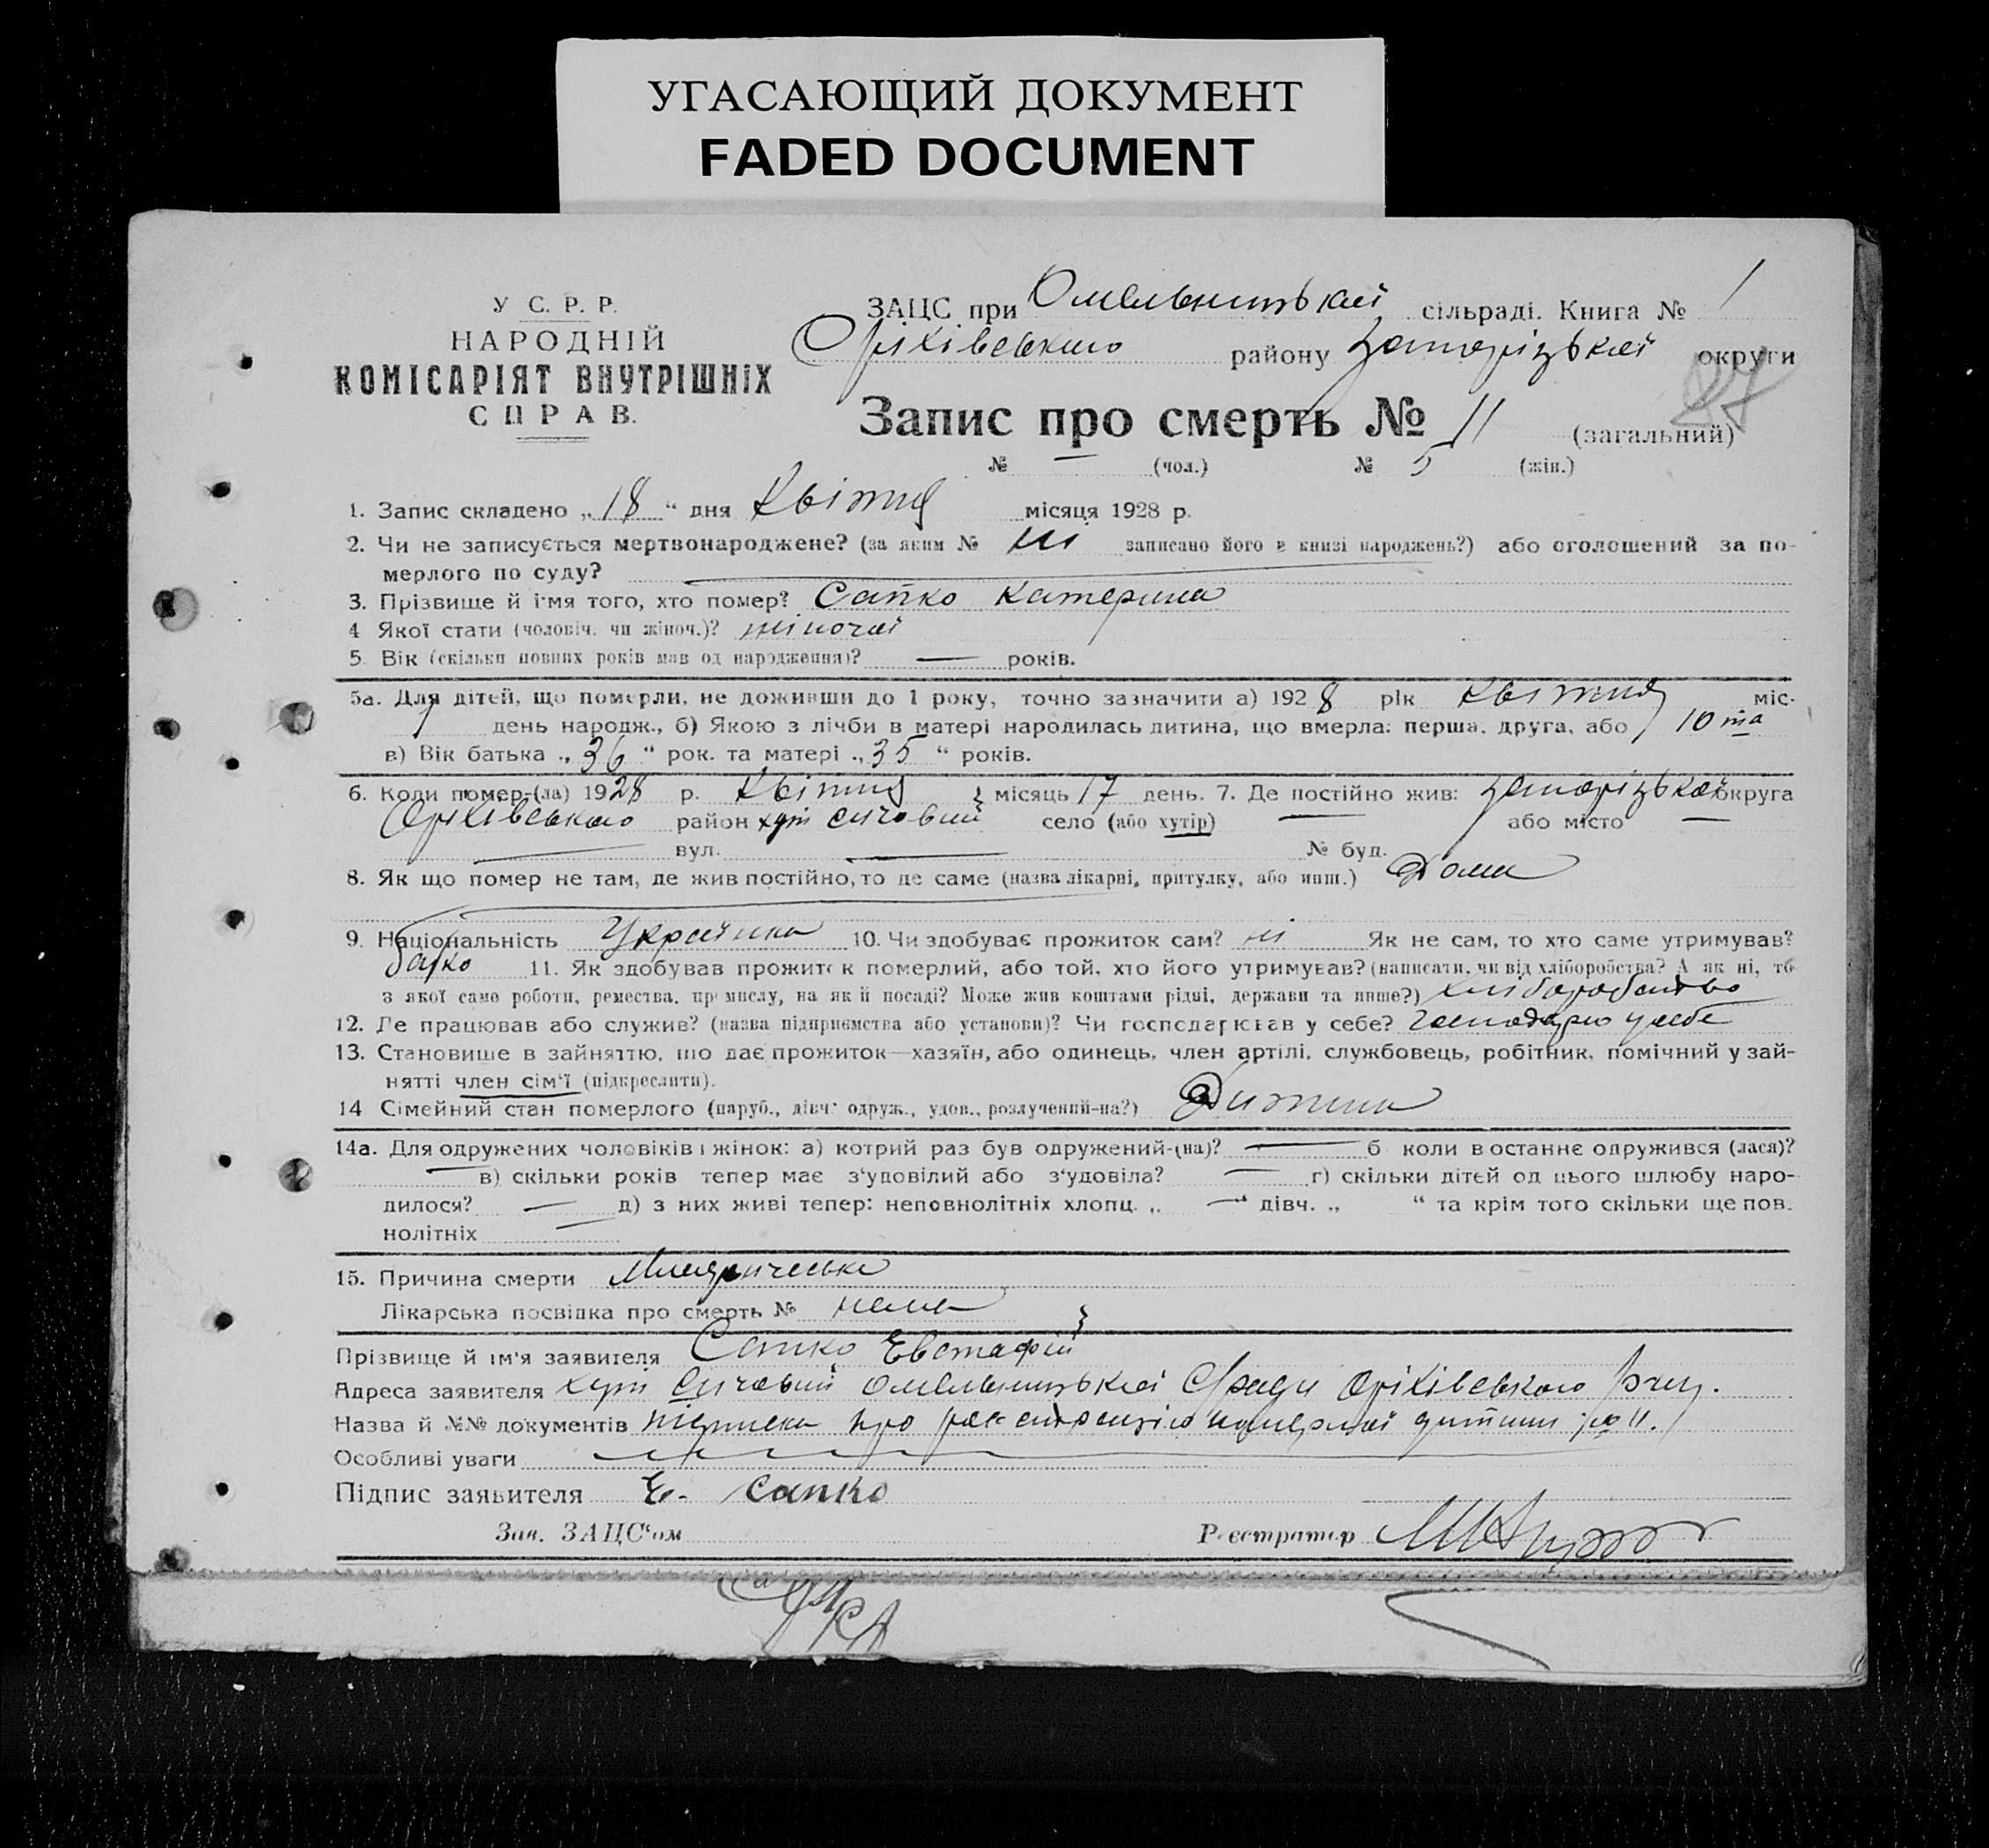 УГАСАЮЩИЙ ДОКУМЕНТ
FADED DOCUMENT
У С. Р. Р.
НАРОДНІЙ
КОМІСАРІЯТ ВНУТРІШНІХ
СПРАВ.
ЗАЦС при Омельницькій сільраді. Книга № 1
Оріхівського району Запорізької округи
27
Запис про смерть № 11 (загальний)
№ — (чол.) № 5 (жін.)
1. Запис складено „18“ дня Квітня місяця 1928 р.
2. Чи не записується мертвонароджене? (за яким № ні записано його в книзі народжень?) або оголошений за по-
мерлого по суду?
3. Прізвище й ім'я того, хто помер? Сапко Катерина
4 Якої стати (чоловіч. чи жіноч.)? жіночої
5. Вік (скільки повних років мав од народження)? — років.
5а. Для дітей, що померли, не доживши до 1 року, точно зазначити а) 1928 рік Квітня міс.
7 день народж., б) Якою з лічби в матері народилась дитина, що вмерла: перша, друга, або 10 та
в) Вік батька „36“ рок. та матері „35“ років.
6. Коли помер-(ла) 1928 р. Квітня місяць 17 день. 7. Де постійно жив: Запорізької округа
Оріхівського район хут Сичовий село (або хутір) — або місто —
— вул. — № буд.
8. Як що помер не там, де жив постійно, то де саме (назва лікарні, притулку, або инш.) Дома
9. Національність Українка 10. Чи здобуває прожиток сам? ні Як не сам, то хто саме утримував?
батько 11. Як здобував прожиток померлий, або той, хто його утримував? (написати, чи від хліборобства? А як ні, то
з якої саме роботи, ремества, промислу, на якій посаді? Може жив коштами рідні, держави та инше?) хліборобство
12. Де працював або служив? (назва підприємства або установи)? Чи господарював у себе? Господарю у себе
13. Становище в зайняттю, що дає прожиток—хазяїн, або одинець, член артілі, службовець, робітник, помічний у зай-
нятті член сім'ї (підкреслити).
14 Сімейний стан померлого (паруб., дівч. одруж., удов., розлучений-на?) Дитина
14а. Для одружених чоловіків і жінок: а) котрий раз був одружений-(на)? — б коли востаннє одружився (лася)?
— в) скільки років тепер має з'удовілий або з'удовіла? — г) скільки дітей од цього шлюбу наро-
дилося? — д) з них живі тепер: неповнолітніх хлопц. „ —“ дівч. „ “ та крім того скільки ще пов.
нолітніх —
15. Причина смерти
Лікарська посвідка про смерть № нема
Прізвище й ім'я заявителя Сапко Евстафій
Адреса заявителя хут Сичовий Омельницької С/ради Оріхівського
Назва й №№ документів підписка про реєстрацію померлої дитини № 11.
Особливі уваги
Підпис заявителя Е. Сапко
Зав. ЗАЦС'ом Реєстратор